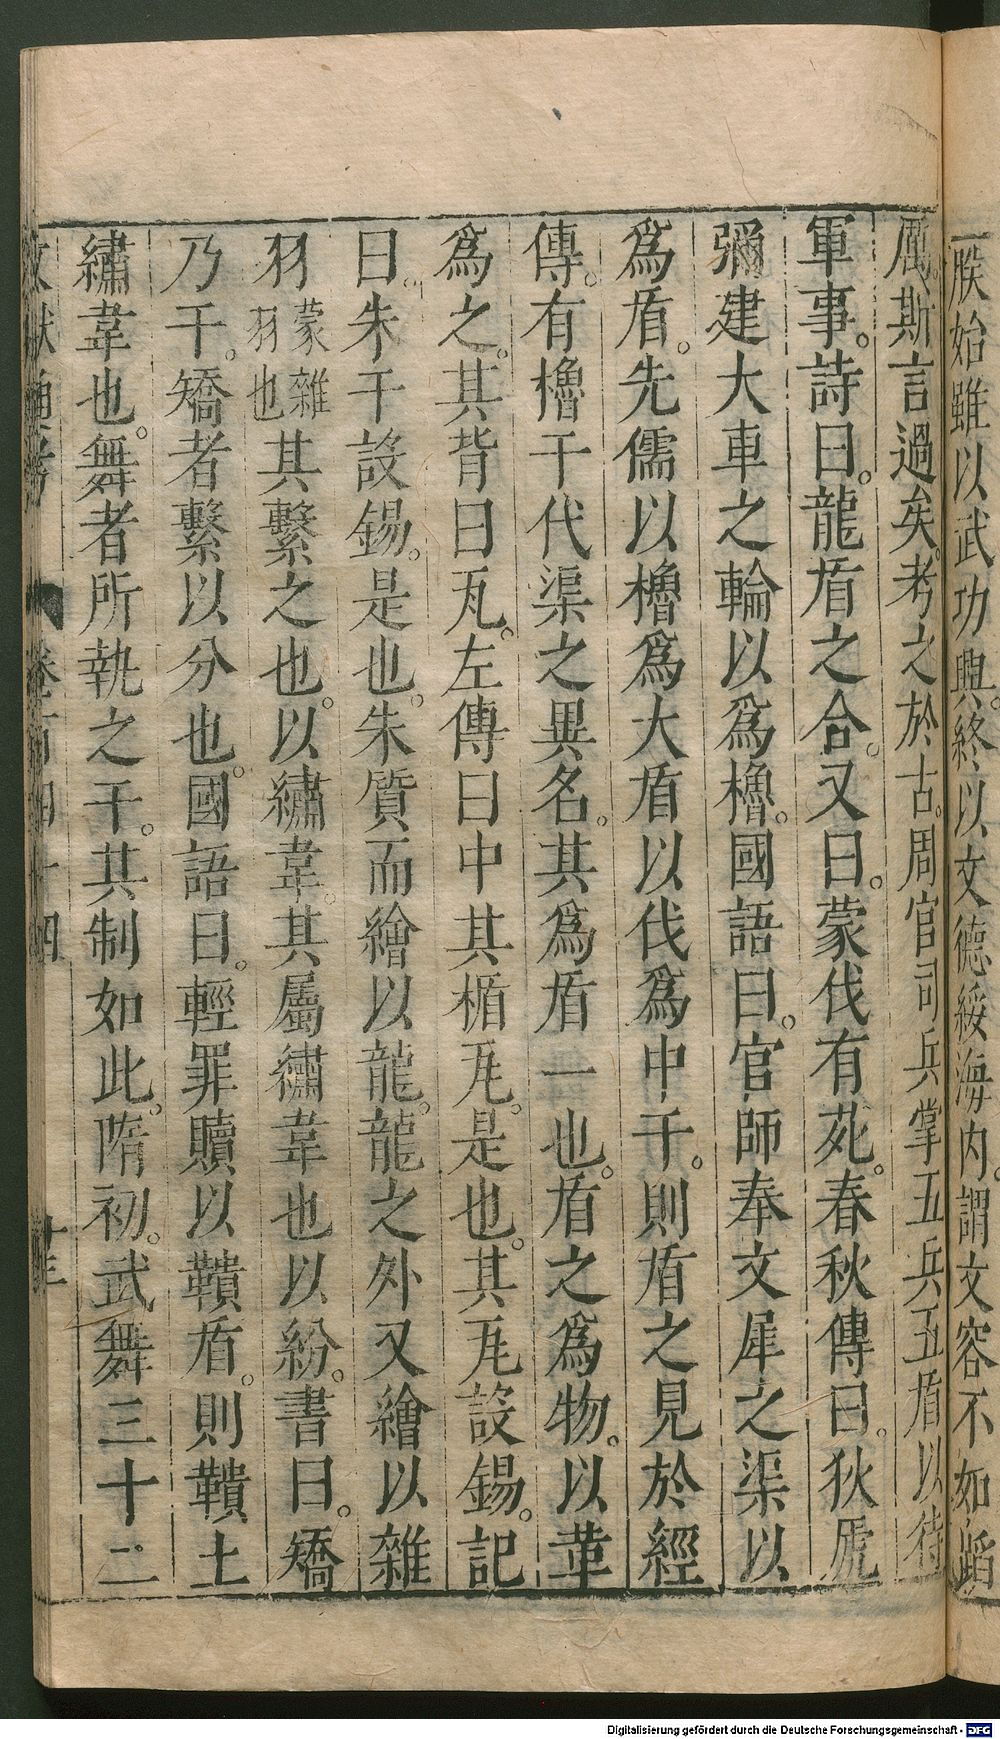 朕始雖以武功興。終以文德綏海内。謂文容不如蹈
厲。斯言過矣。考之於古。周官司兵掌五兵五盾以待
軍事。詩曰。龍盾之合。又曰。蒙伐有苑。春秋傳曰。狄虒
彌建大車之輪以爲櫓。國語曰。官師奉文犀之渠以
爲盾。先儒以櫓爲大盾以伐爲中干。則盾之見於經
傳。有櫓干代渠之異名。其爲盾一也。盾之爲物。以革
爲之。其背曰瓦。左傳曰中其楯瓦。是也。其瓦設錫。記
曰。朱干設錫。是也。朱質而繪以龍。龍之外又繪以雜
羽蒙雜羽也其繫之也。以繡韋。其屬繡韋也以紛。書曰。矯
乃干。矯者繫以分也。國語曰。輕罪贖以鞼盾。則鞼土
繡韋也。舞者所執之干。其制如此。隋初。武舞三十二
文獻通考 卷百四十四
Digitalisierung gefördert durch die Deutsche Forschungsgemeinschaft - DFG